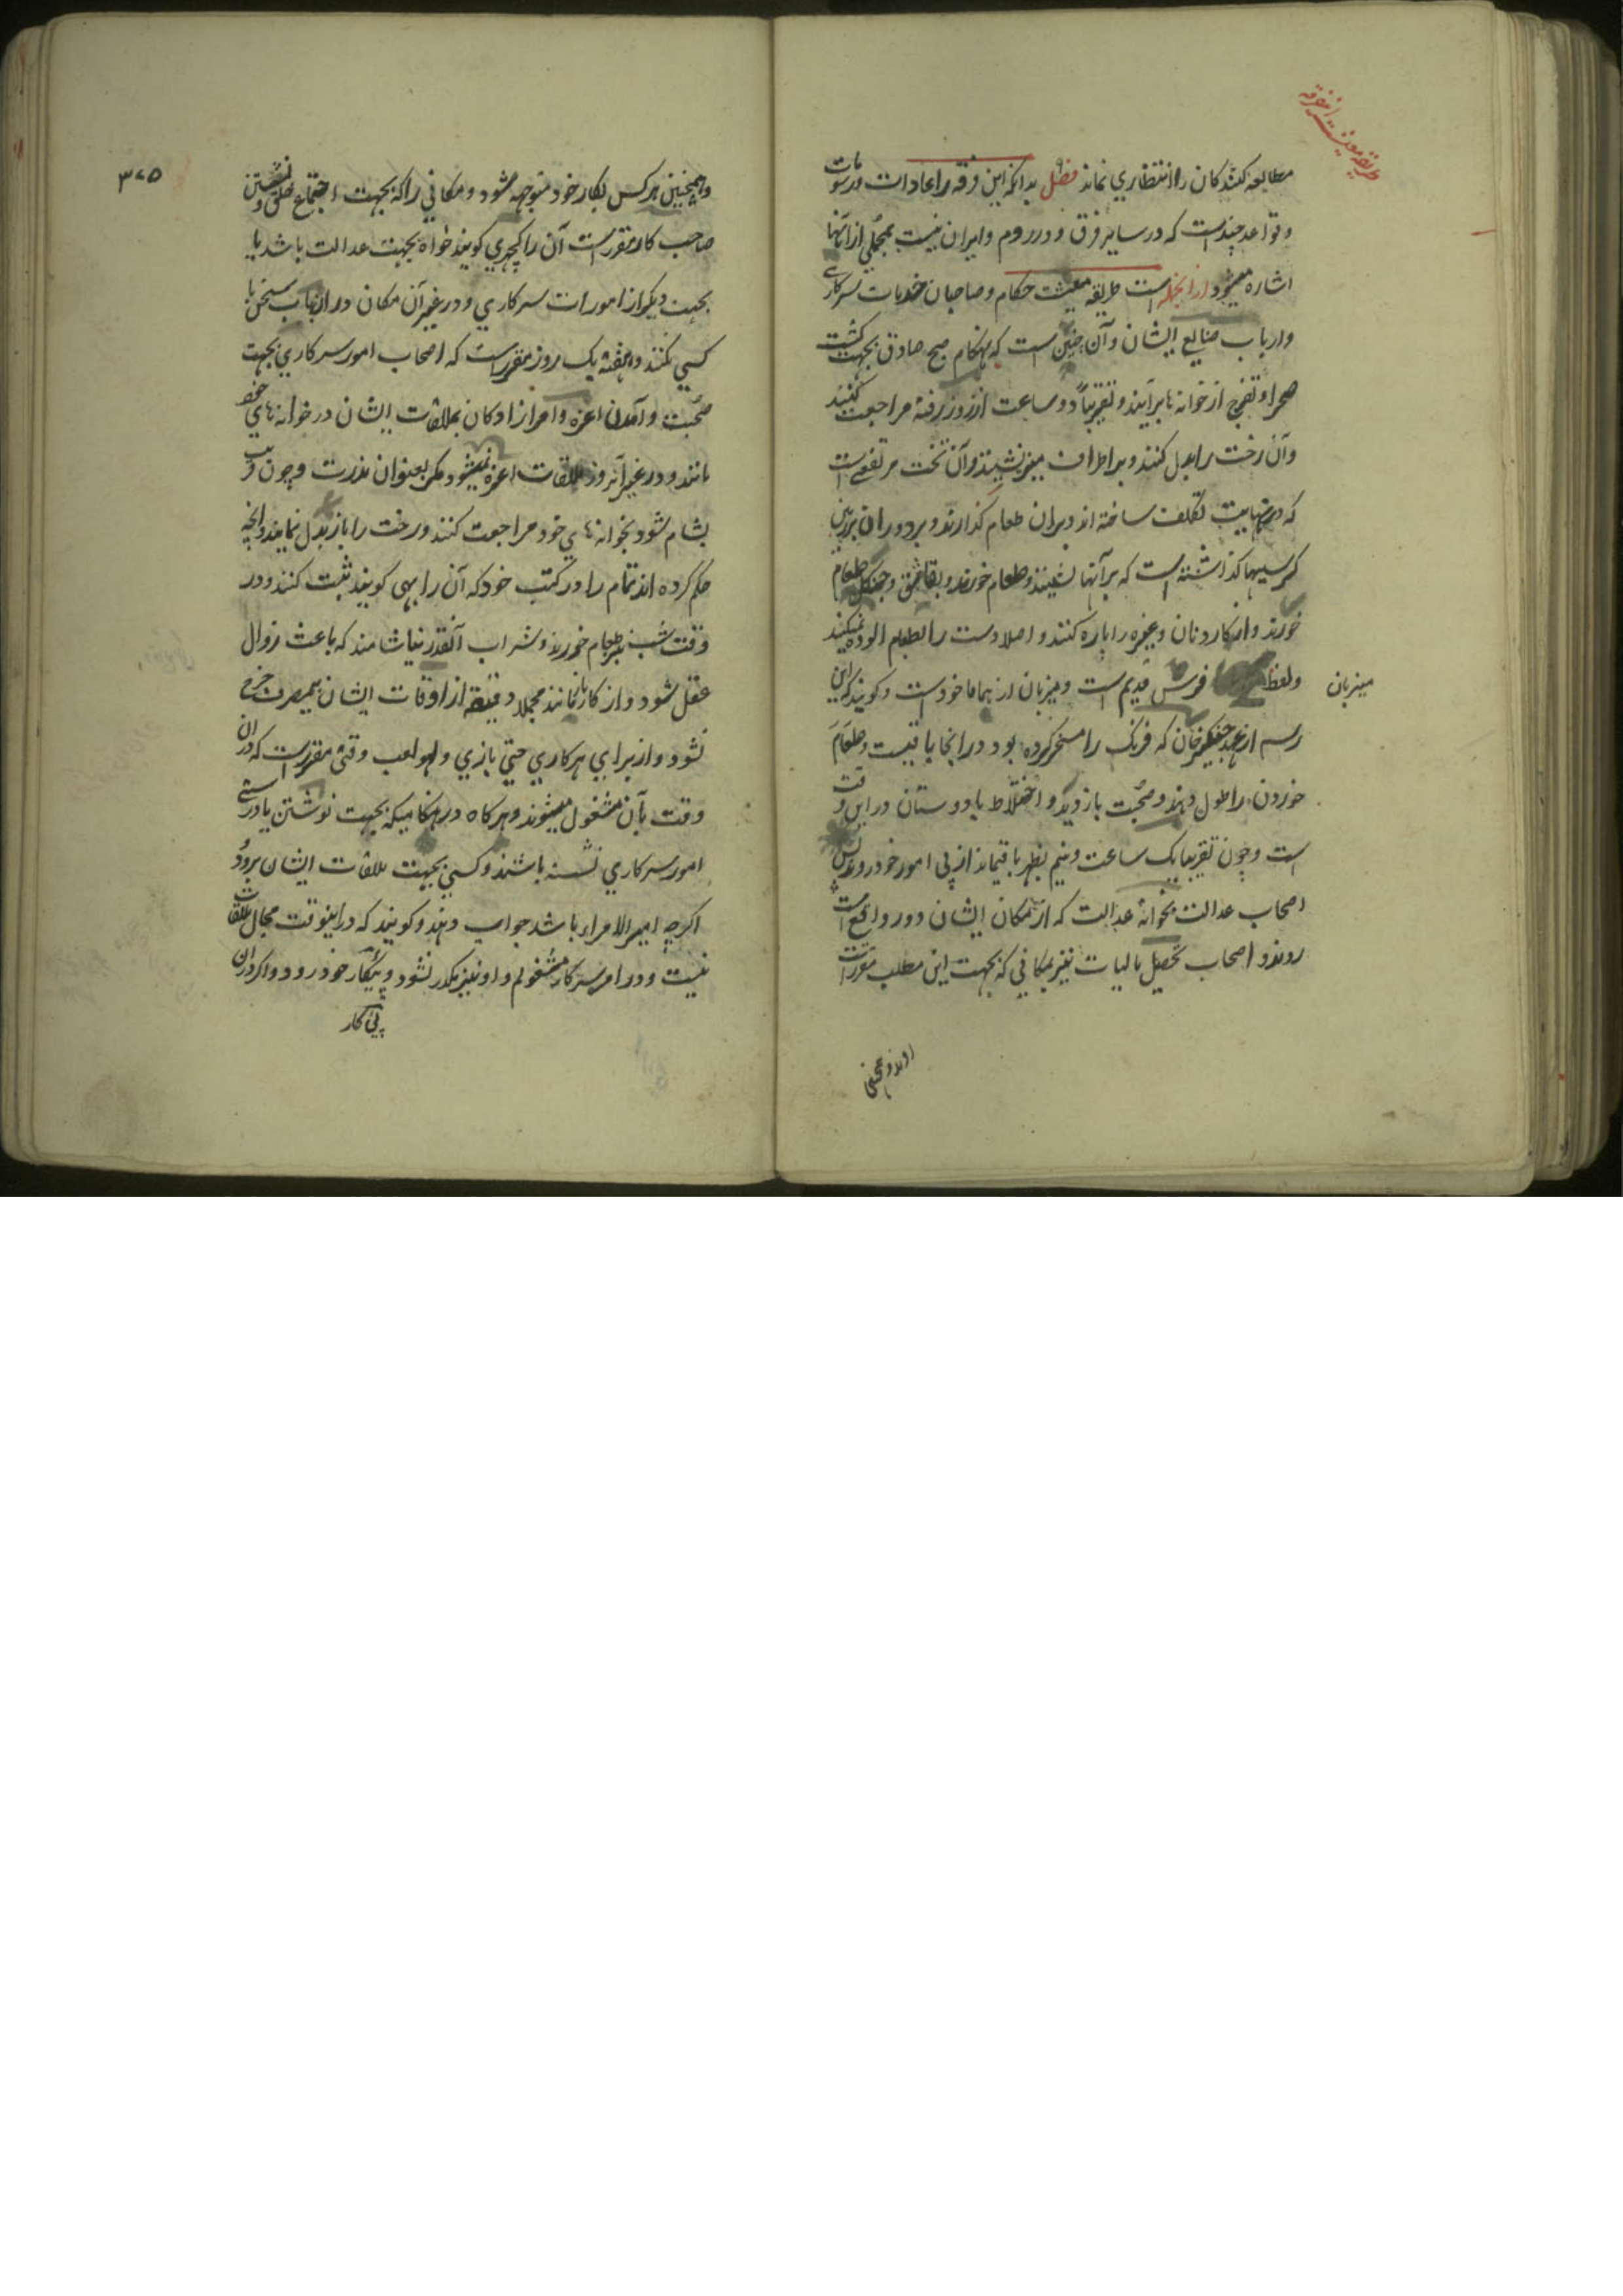 طریقه معیشت این فرقه
مطالعه کنندکان را انتظاری نماند فصل بدانکه این فرقه را عادات و رسومات
و قواعد چند است که در سایر فرق و در روم و ایران نیست بمجملی از آنها
اشاره میشود از آنجمله است طریقه معیشت حکام و صاحبان خدمات سرکاری
و ارباب صنایع ایشان و آن چنین است که بهنکام صبح صادق بجهت کشت
صحرا و تفرج از خوانه ها برآیند و تقریباً دو ساعت از روز رفته مراجعت کنند
و آن رخت را بدل کنند و بر اطراف میز نشینند و آن تخت مرتفعی است
که در نهایت تکلف ساخته اند و بران طعام کذارند و بر دور ان بزرین
کرسیها کذاشته است که برآنها نشینند و طعام خورند و بقاشق و چنکل طعام
خورند و از کارد نان و غیره را پاره کنند و اصلا دست را بطعام الوده نمیکنند
میزبان
و لفظ فرس قدیم است و میزبان از هما ماخوذ است و کویند که این
رسم از عهد چنکیز خان که فرنک را مسخر کرده بود در انجا باقیست و طعام
خوردن را طول دهند و صحبت بازدید و اختلاط با دوستان در این وقت
است و چون تقریبا یک ساعت و نیم بظهر باقیماند از پی امور خود روند پس
اصحاب عدالت بخوانهٔ عدالت که از مکان ایشان دور واقع است
روند و اصحاب تحصیل مالیات نیز بمکانی که بجهت این مطلب مقرر است
روند و همچنین
۳۷۵
و همچنین هرکس بکار خود متوجه شود و مکانی را که بجهت اجتماع خلق و نشستن
صاحب کار مقرر است آن را کچهری کویند خواه بجهت عدالت باشد یا
بجهت دیکر از امورات سرکاری و در غیر آن مکان در ان باب سخن با
کسی نکنند و هفته یک روز مقرر است که اصحاب امور سرکاری بجهت
صحبت و آمدن اعزه و امرازادکان بملاقات ایشان در خوانه های خود
مانند و در غیر آنروز ملاقات اعزه نمیشود مکر بعنوان ندرت و چون قریب
بشام شود بخوانه های خود مراجعت کنند و رخت را باز بدل نمایند و آنچه
حکم کرده اند تمام را در کتب خود که آن را بهی کویند ثبت کنند و در
وقت شب نیز طعام خورند و شراب آنقدر نیاشامند که باعث زوال
عقل شود و از کار بازمانند مجملا دقیقه از اوقات ایشان بیمصرف خرج
نشود و از برای هر کاری حتی بازی و لهو لعب وقتی مقرر است که در ان
وقت بآن مشغول میشوند و هرکاه در هنکامیکه بجهت نوشتن یا درستی
امور سرکاری نشسته باشند و کسی بجهت ملاقات ایشان برود
اکرچه امیر الامراء باشد جواب دهند و کویند که در اینوقت مجال ملاقات
نیست و در امر سرکار مشغولم و او نیز مکدر نشود و پی کار خود رود و اکر در ان
پی کار